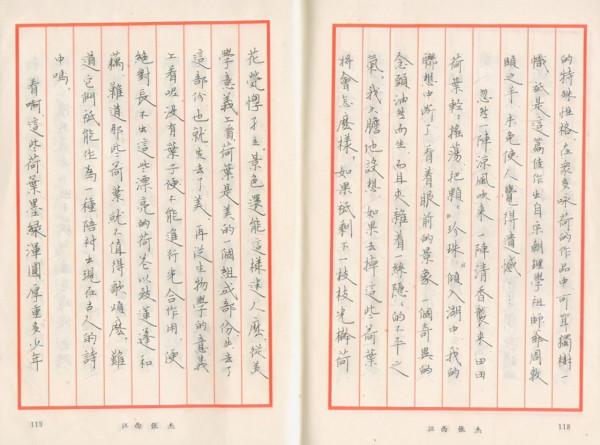 的特殊性格，在衆多咏荷的作品中可算獨樹一
幟，祇是這篇佳作出自宋朝理學祖師爺周敦
頤之手，未免使人覺得遺憾……
忽然一陣凉風吹來，一陣清香襲來，田田
荷葉輕輕摇蕩，把顆顆“珍珠”傾入湖中，我的
聯想中斷了，看着眼前的景象，一個奇異的
念頭油然而生，而且夾雜着一絲隱隱的不平之
氣，我大膽地設想：如果去掉這些荷葉
將會怎麽樣，如果祇剩下一枝枝光桿荷
118
江西張杰
花，煢煢孑立，景色還能這樣迷人麽，從美
學意義上看荷葉是美的一個組成部份，失去了
這部份也就失去了美，再從生物學的意義
上看吧，没有葉子便不能進行光合作用，便
絕對長不出這些漂亮的荷花以致蓮蓬和
藕，難道那些荷葉就不值得歌頌麽，難
道它們祇能作為一種陪襯出現在古人的詩
中嗎，
看啊，這些荷葉墨緑渾圓厚重多少年
119
江西張杰